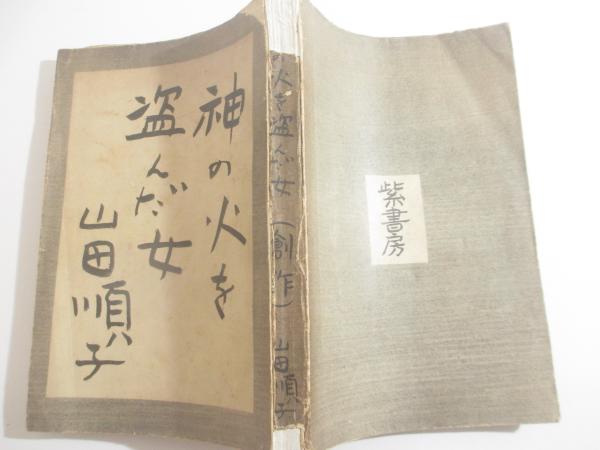 神の火を
盗んだ女
山田順子
の火を盗んだ女（創作） 山田順子
紫書房